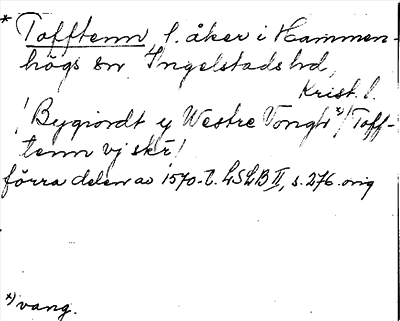 * Tofftenn f. åker i Hammen-
högs sn Ingelstads hd,
Krist. l.
! Bygiordt y Westre Vongh x)/ Toff-
tenn vj skr!
förra delen av 1570-t. LSLB II, s. 276. orig
x) vang.